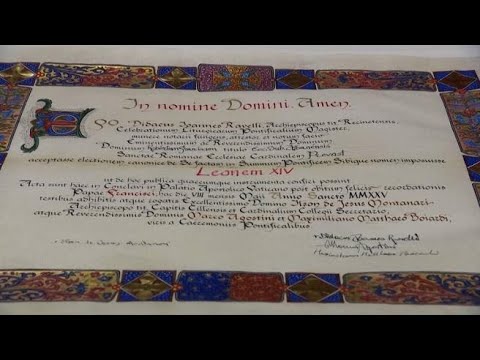 In nomine Domini. Amen.
Ego Didacus Ioannes Ravelli, Archiepiscopus tit. Recinetensis,
Celebrationum Liturgicarum Pontificalium Magister,
munere notarii fungens, attestor et notum facio
Eminentissimum ac Reverendissimum Dominum
Dominum
Sanctae Romanae Ecclesiae Cardinalem Prevost
acceptasse electionem canonice de Se factam in Summum Pontificem Sibique nomen imposuisse
Leonem XIV
ut de hoc publica quaecumque instrumenta confici possint
Acta sunt haec in Conclavi in Palatio Apostolico Vaticano post obitum felicis recordationis
Papae Francisci, hac die VIII mensis Maii Anno Sancto MMXXV
testibus adhibitis atque rogatis Excellentissimo Domino Ilson de Jesus Montanari
Archiepiscopo tit. Capitis Cillensis et Cardinalium Collegii Secretario,
atque Reverendissimis Dominis Marco Agostini et Maximiliano Matthaeo Boiardi,
viris a Caeremoniis Pontificalibus